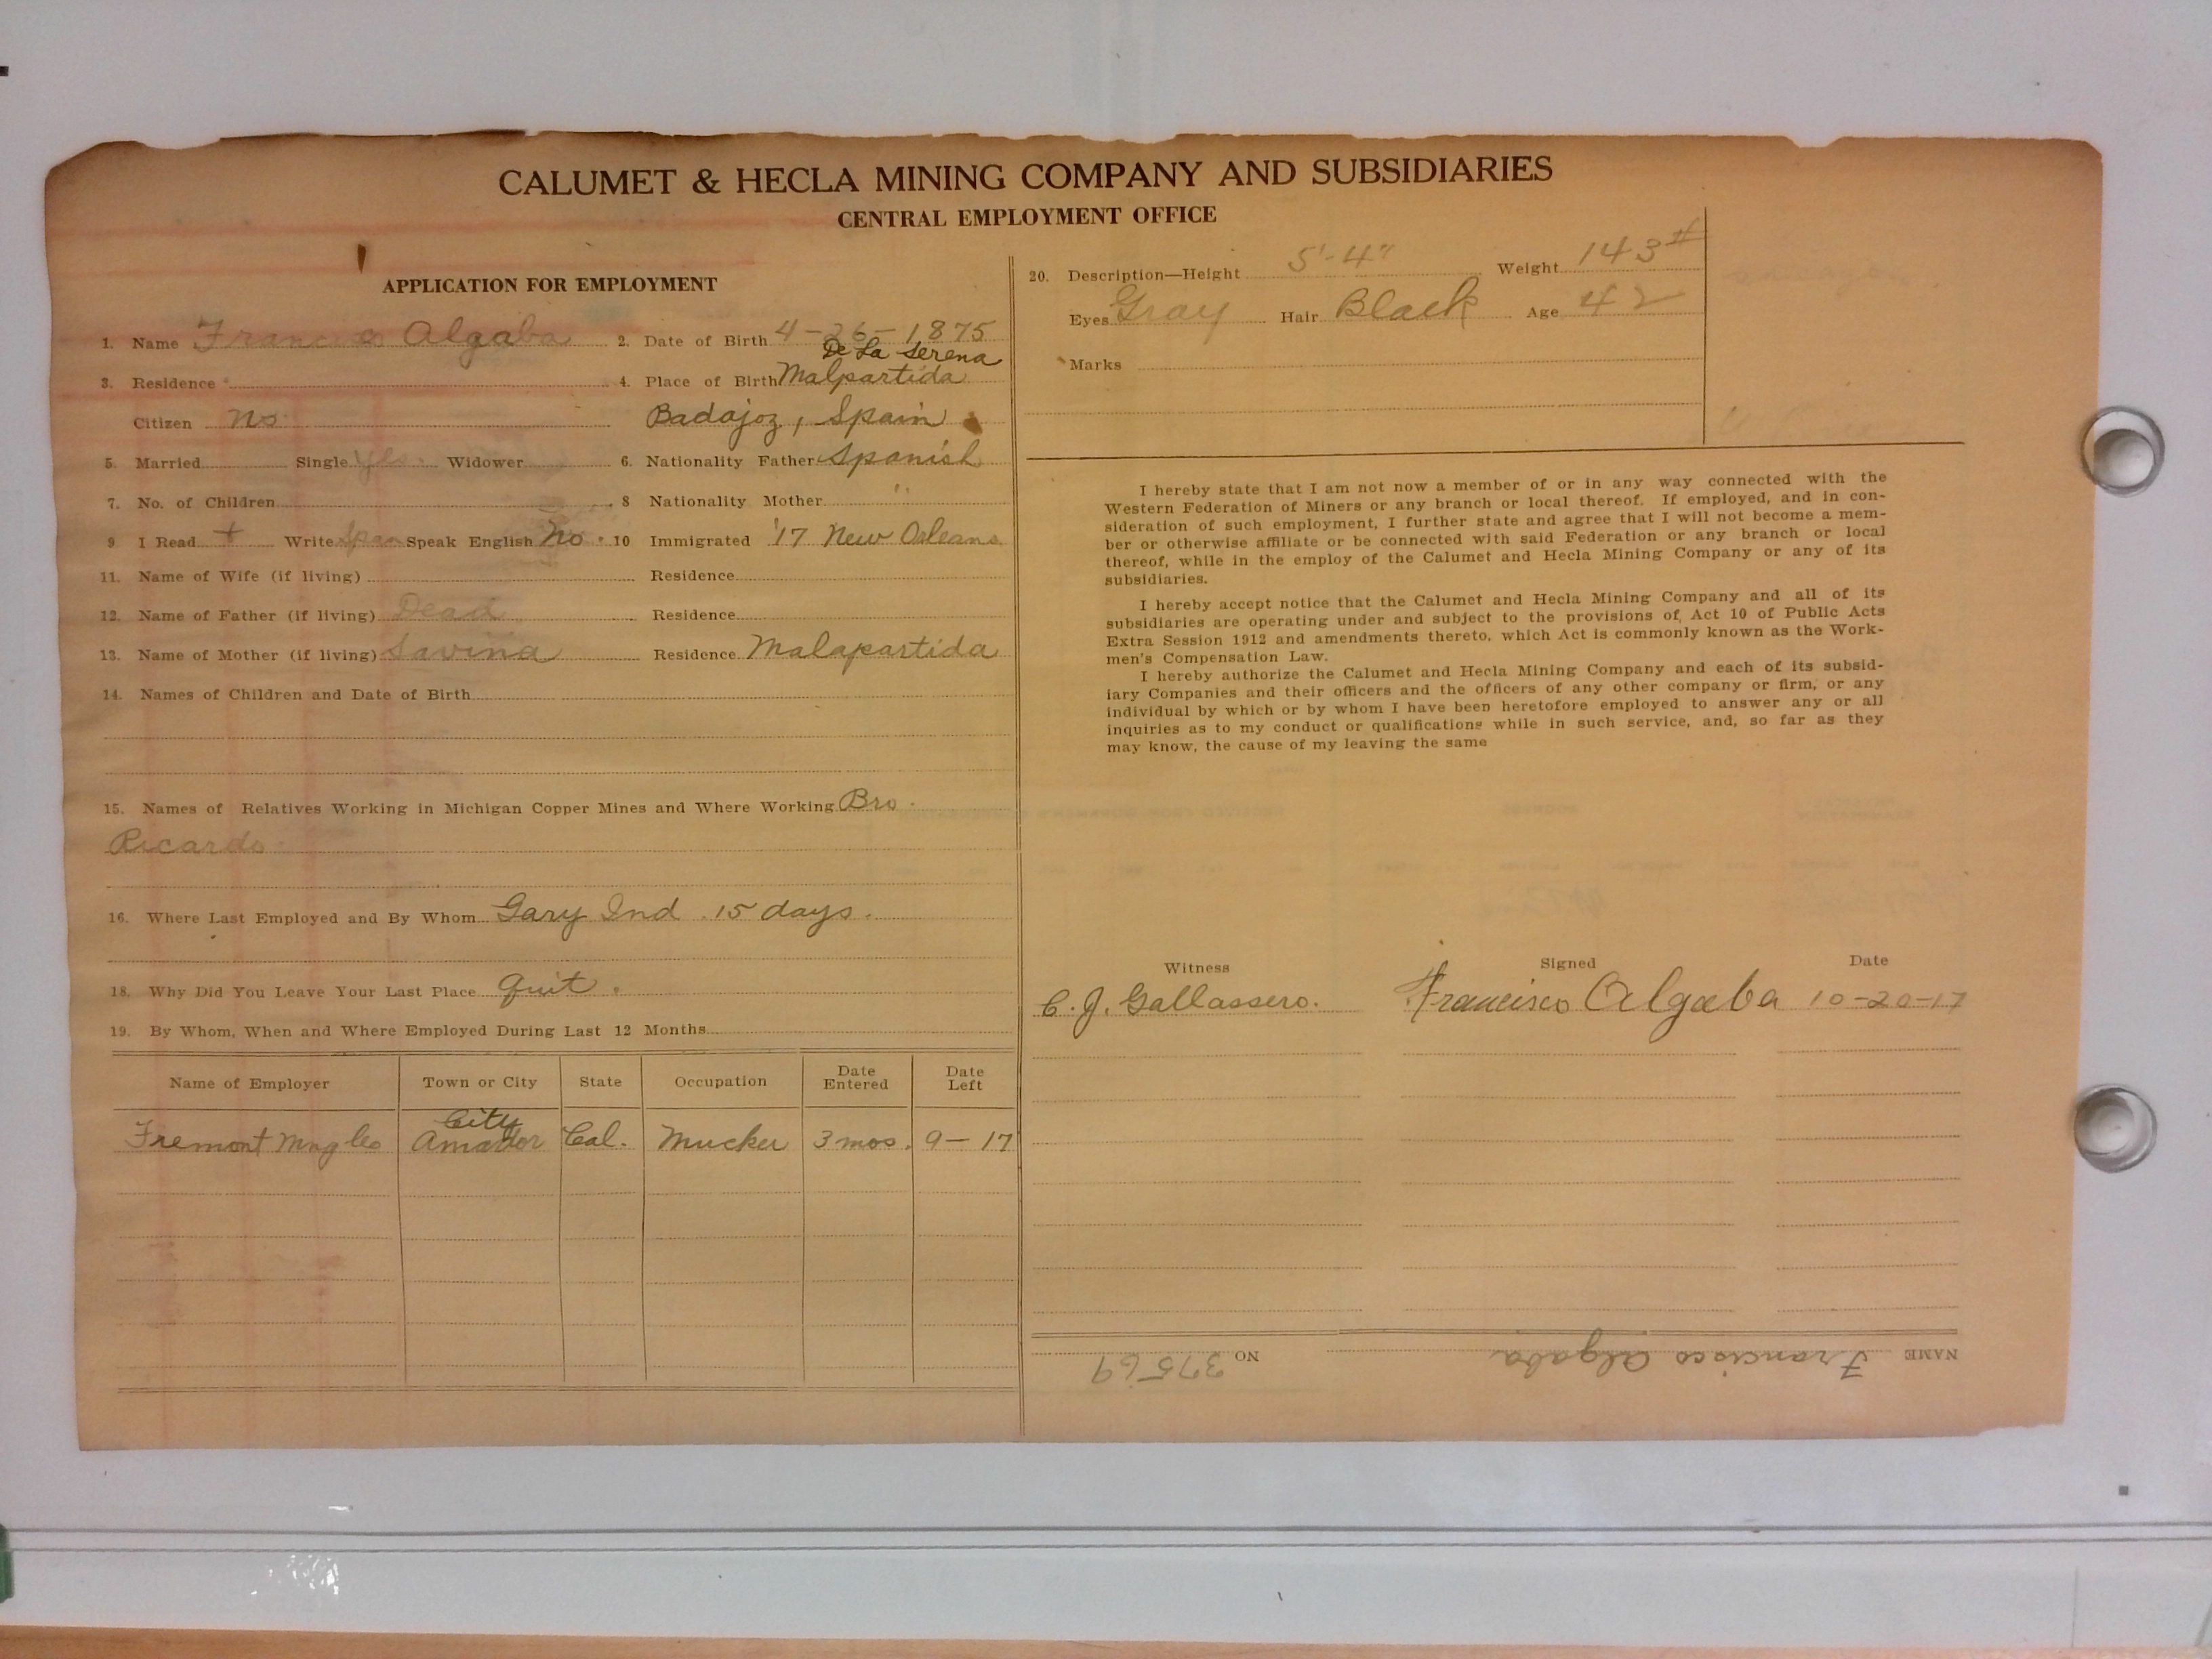 CALUMET & HECLA MINING COMPANY AND SUBSIDIARIES
CENTRAL EMPLOYMENT OFFICE
APPLICATION FOR EMPLOYMENT
1. Name Francisco Algaba 2. Date of Birth 4-26-1875
De La Serena
3. Residence 4. Place of Birth Malpartida
Citizen no Badajoz, Spain
5. Married Single yes. Widower 6. Nationality Father Spanish
7. No. of Children 8 Nationality Mother "
9 I Read + Write Span Speak English No. 10 Immigrated '17 New Orleans
11. Name of Wife (if living) Residence
12. Name of Father (if living) Dead Residence
13. Name of Mother (if living) Savina Residence Malapartida
14. Names of Children and Date of Birth
15. Names of Relatives Working in Michigan Copper Mines and Where Working Bro.
Ricardo
16. Where Last Employed and By Whom Gary Ind. 15 days.
18. Why Did You Leave Your Last Place quit.
19. By Whom, When and Where Employed During Last 12 Months
Name of Employer Town or City State Occupation Date Entered Date Left
City
Fremont Mng Co Amador Cal. Mucker 3 mos. 9-17
20. Description—Height 5'-4" Weight 143#
Eyes Gray Hair Black Age 42
Marks
I hereby state that I am not now a member of or in any way connected with the
Western Federation of Miners or any branch or local thereof. If employed, and in con-
sideration of such employment, I further state and agree that I will not become a mem-
ber or otherwise affiliate or be connected with said Federation or any branch or local
thereof, while in the employ of the Calumet and Hecla Mining Company or any of its
subsidiaries.
I hereby accept notice that the Calumet and Hecla Mining Company and all of its
subsidiaries are operating under and subject to the provisions of Act 10 of Public Acts
Extra Session 1912 and amendments thereto, which Act is commonly known as the Work-
men's Compensation Law.
I hereby authorize the Calumet and Hecla Mining Company and each of its subsid-
iary Companies and their officers and the officers of any other company or firm, or any
individual by which or by whom I have been heretofore employed to answer any or all
inquiries as to my conduct or qualifications while in such service, and, so far as they
may know, the cause of my leaving the same
Witness Signed Date
C. J. Gallassero. Francisco Algaba 10-20-17
NAME Francisco Algaba NO 37569